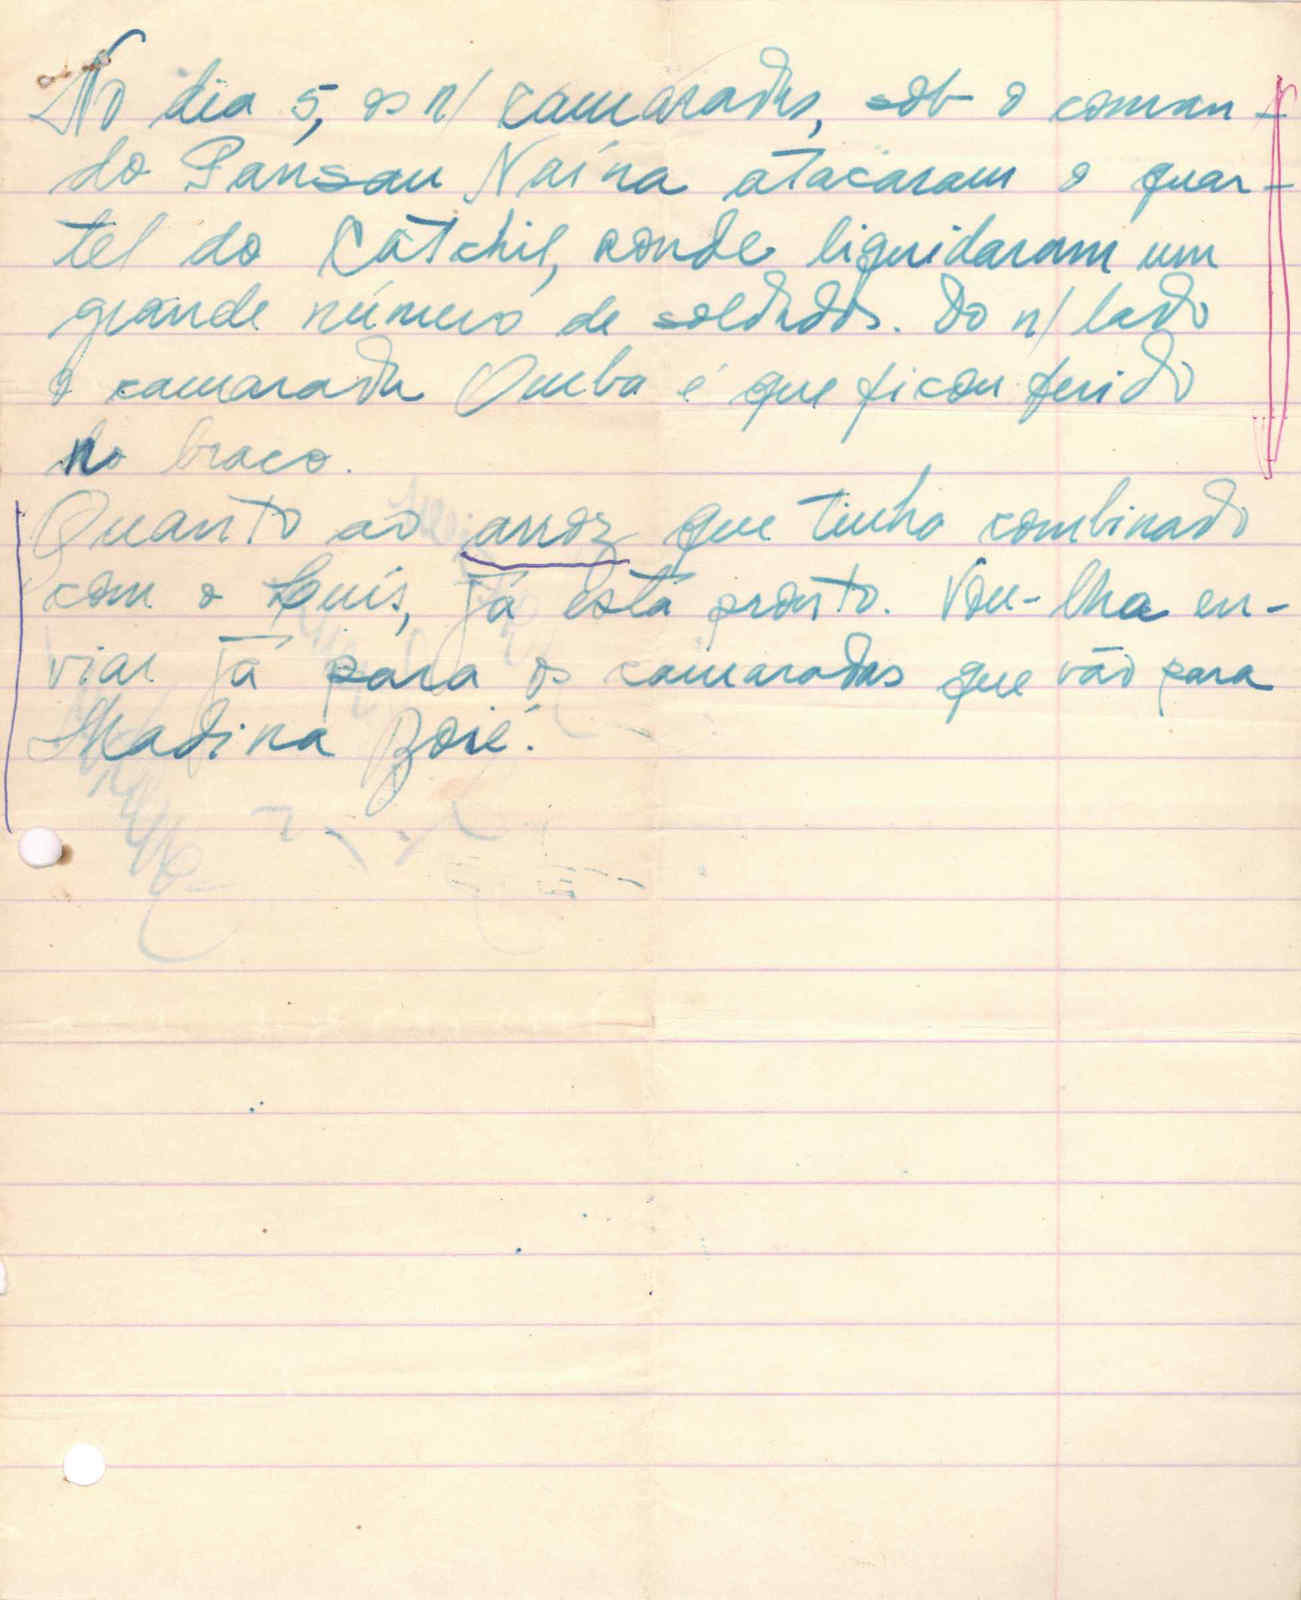 No dia 5, os n/ camaradas, sob o coman-
do Pansau Naína atacaram o quar-
tel do Catchil, aonde liquidaram um
grande número de soldados. Do n/ lado
o camarada Oumba é que ficou ferido
no braço.
Quanto ao arroz que tinha combinado
com o Luís, já está pronto. Vou-lha en-
viar já para os camaradas que vão para
Madina Boié.